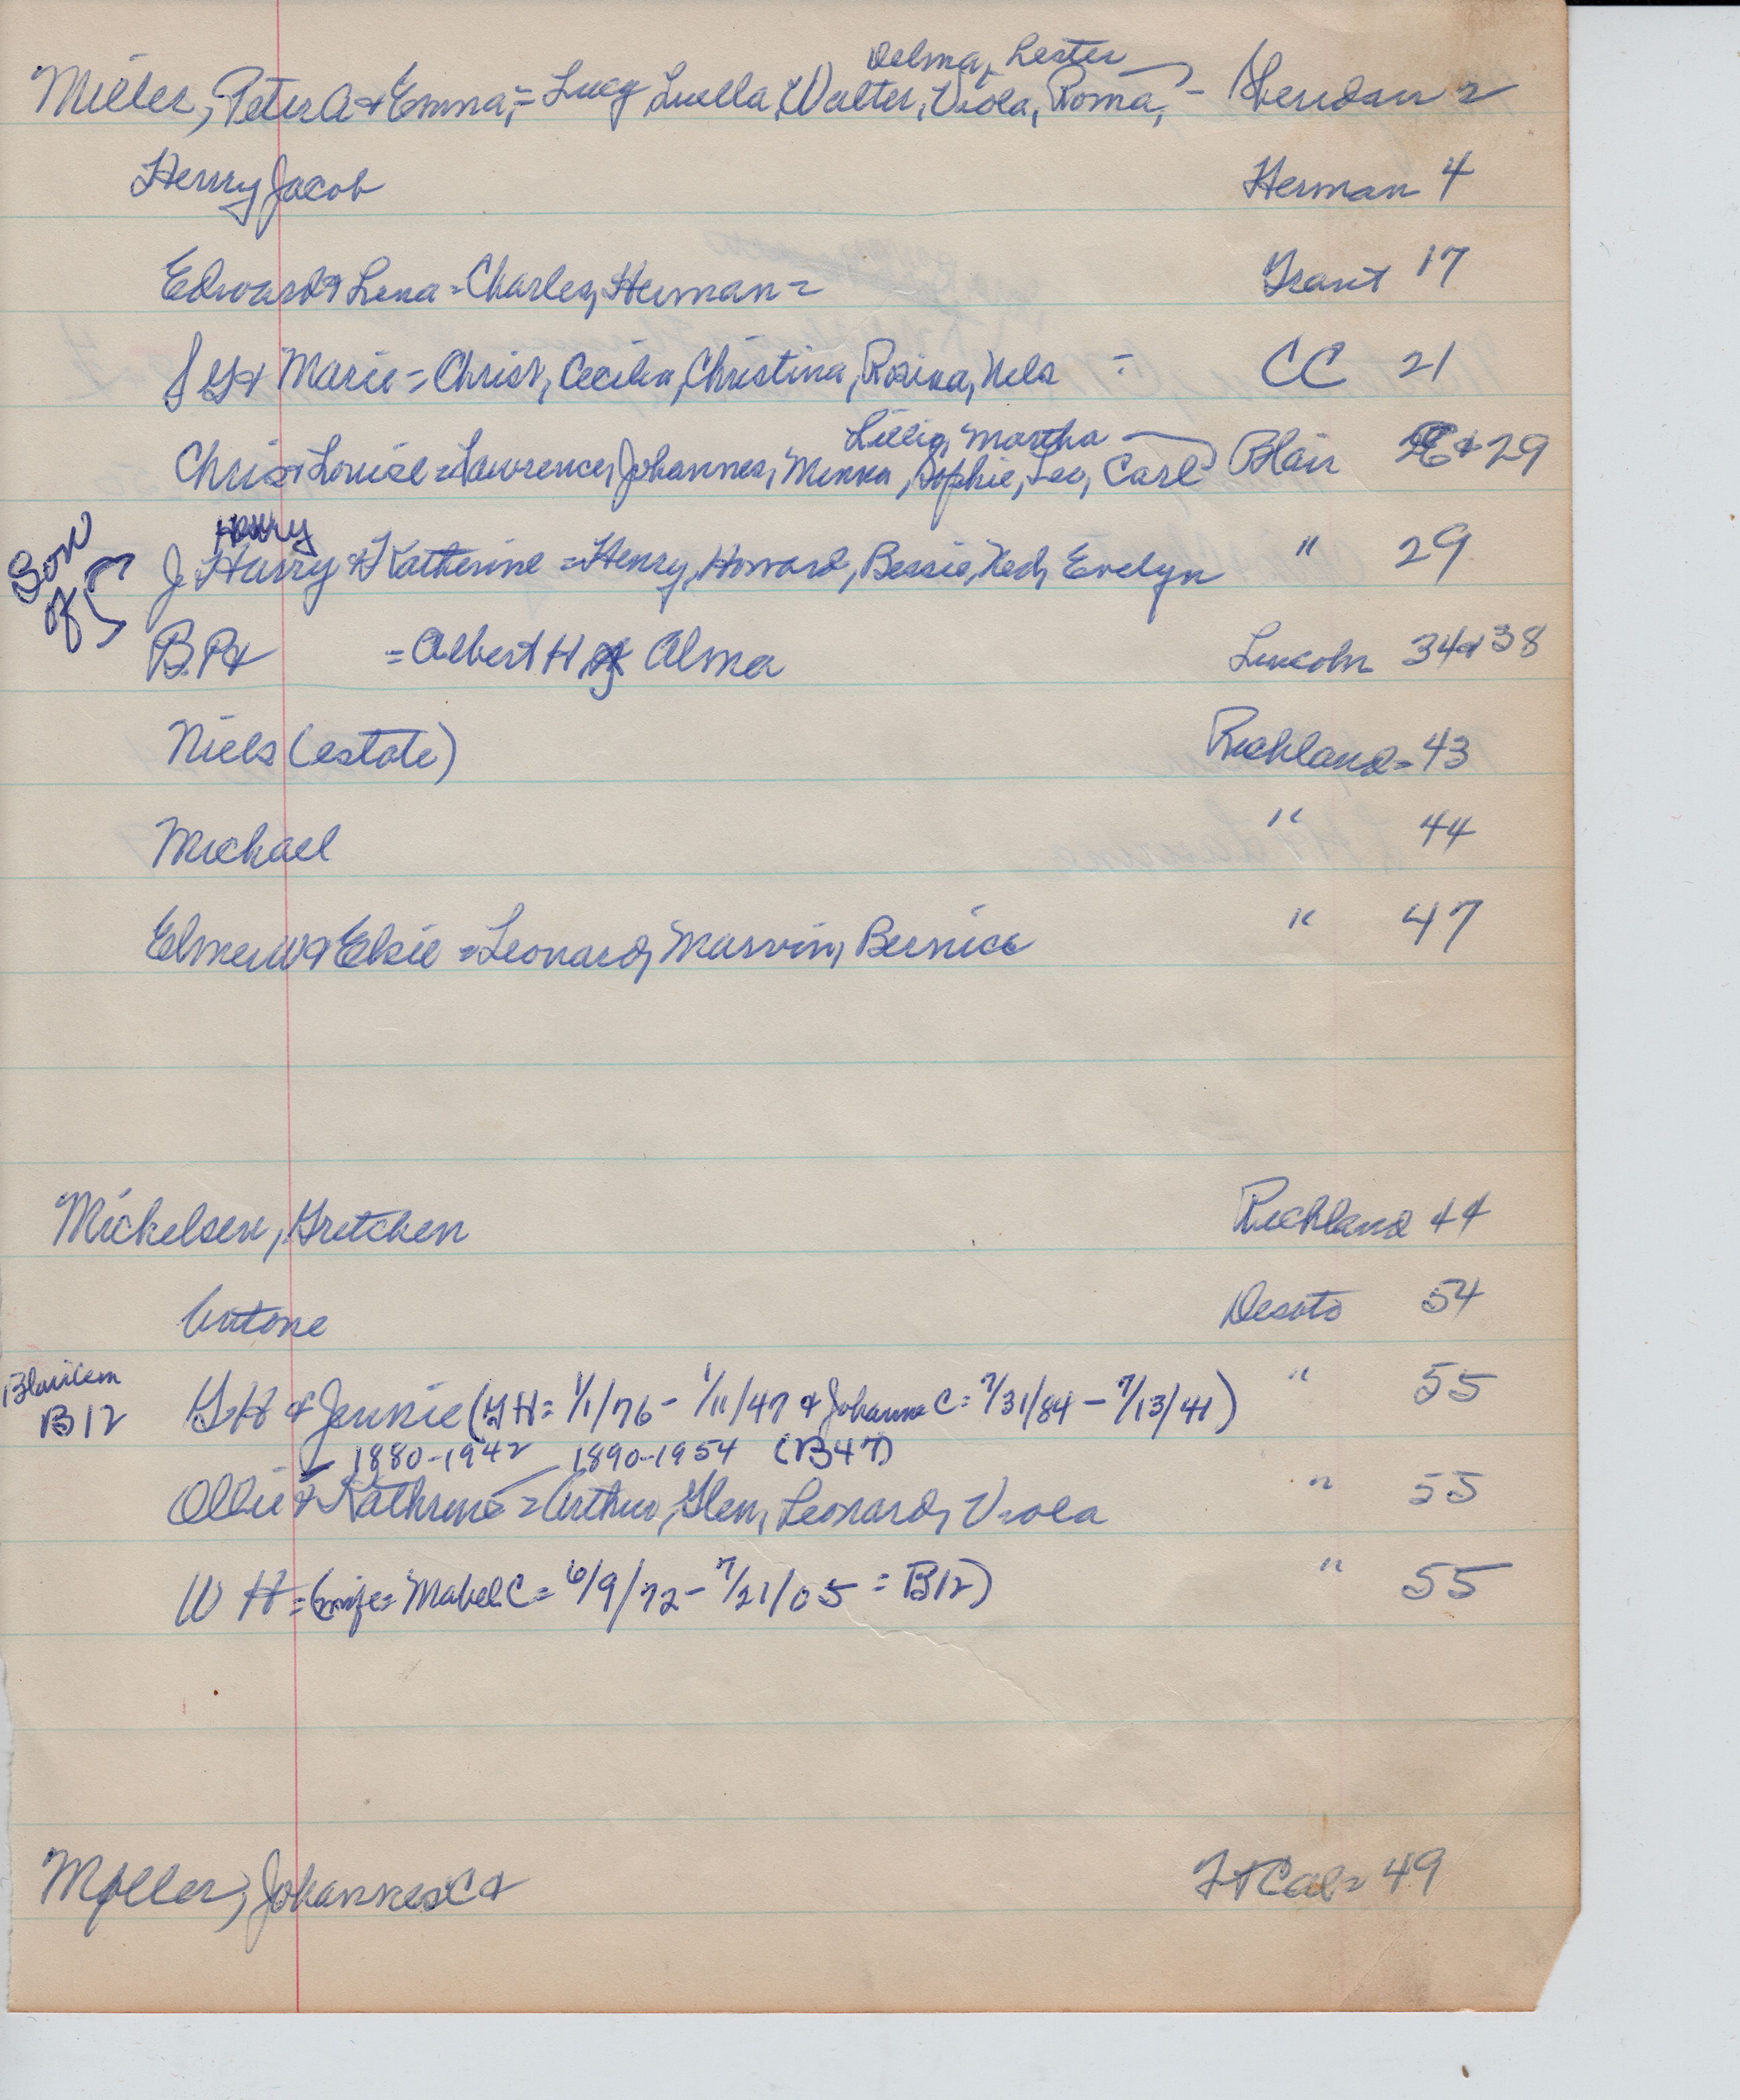 Delma, Lester
Miller, Peter A & Emma, = Lucy, Luella, Walter, Viola, Roma, - Sheridan 2
Henry Jacob Herman 4
Edward & Lena = Charles, Herman = Grant 17
& Marie = Christ, Cecilia, Christina, Rosina, Nels = CC 21
Lillie, Martha
Chris & Louise = Lawrence, Johannes, Minna, Sophie, Leo, Carl Blair & 29
Son of
Harry
J. Harry & Katherine = Henry, Howard, Bessie, Ned, Evelyn " 29
B.P. & = Albert H & Alma Lincoln 34 & 38
Niels (estate) Richland = 43
Michael " 44
Elmer W & Elsie = Leonard, Marvin, Bernice " 47
Mickelsen, Gretchen Richland 44
Antone Desoto 54
Blair Cem
B12 GH & Jennie (GH = 1/1/76 - 1/11/47 & Johanna C = 7/31/84 - 7/13/41) " 55
1880-1942 1890-1954 (B47)
Ollie & Kathrine = Arthur, Glen, Leonard, Viola " 55
W H = (wife = Mabel C = 6/9/72 - 7/21/05 = B12) " 55
Møller, Johannes C & Ft Cal = 49